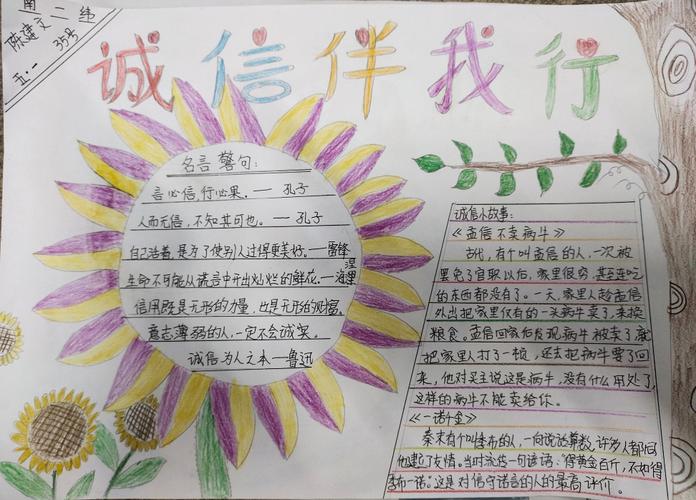 南二纬
陈建文
五.一 35号
诚信伴我行
名言警句:
言必信,行必果。— 孔子
人而无信,不知其可也。— 孔子
自己活着,是为了使别人过得更美好。—雷锋
生命不可能从谎言中开出灿烂的鲜花。—海涅
信用既是无形的力量,也是无形的财富。
意志薄弱的人,一定不会诚实。
诚信为人之本—鲁迅
诚信小故事:
《孟信不卖病牛》
古代,有个叫孟信的人,一次被
罢免了官职以后,家里很穷,甚至连吃
的东西都没有了。一天,家里人趁孟信
外出把家里仅有的一头病牛卖了,来换
粮食。孟信回家后发现病牛被卖了就
把家里人打了一顿,还去把病牛要了回
来,他对买主说这是病牛,没有什么用处了,
这样的病牛不能卖给你。
《一诺千金》
秦末有个叫季布的人,一向说话算数,许多人都同
他建起了友情。当时流传一句谚语:“得黄金百斤,不如得
季布一诺。”这是对信守诺言的人的最高评价